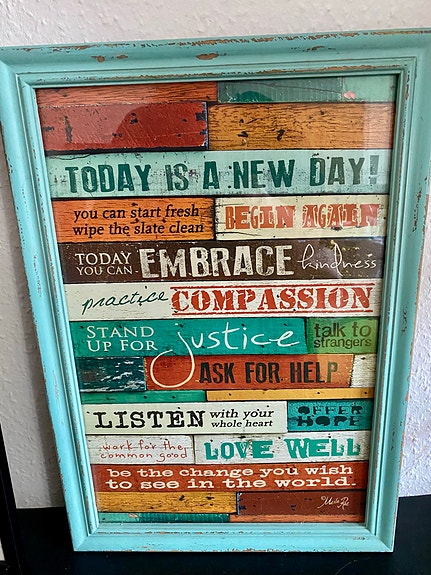 TODAY IS A NEW DAY!
you can start fresh
wipe the slate clean
BEGIN AGAIN
TODAY
YOU CAN -
EMBRACE kindness
practice COMPASSION
STAND
UP FOR
justice
talk to
strangers
ASK FOR HELP
LISTEN with your
whole heart
OFFER
HOPE
work for the
common good
LOVE WELL
be the change you wish
to see in the world.
Marla Rae